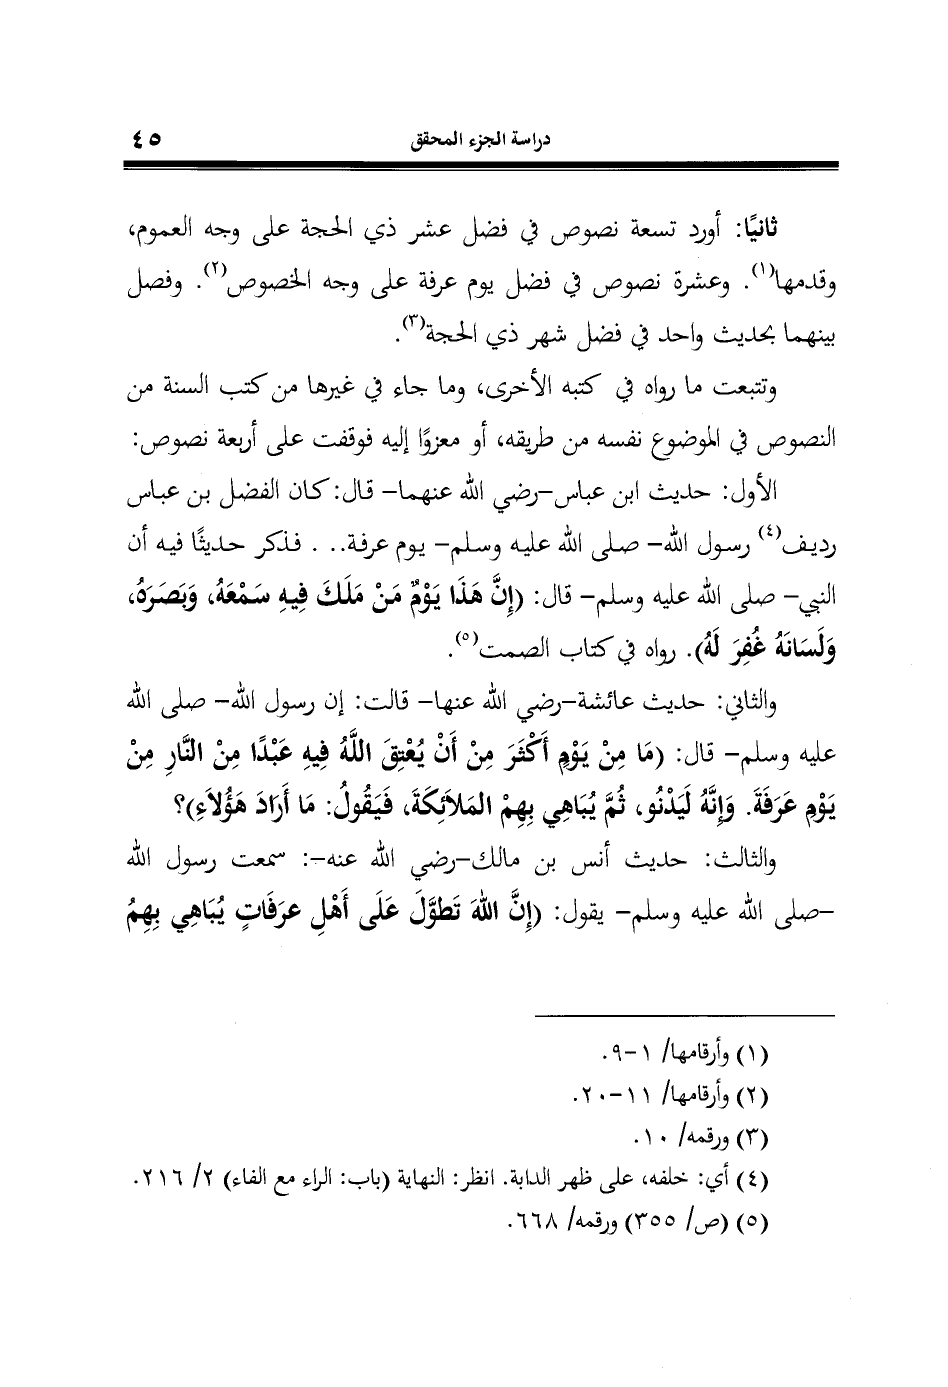 دراسة الجزء المحقق ٤٥
ثانيًا: أورد تسعة نصوص في فضل عشر ذي الحجة على وجه العموم،
وقدمها(١). وعشرة نصوص في فضل يوم عرفة على وجه الخصوص(٢). وفصل
بينهما بحديث واحد في فضل شهر ذي الحجة(٣).
وتتبعت ما رواه في كتبه الأخرى، وما جاء في غيرها من كتب السنة من
النصوص في الموضوع نفسه من طريقه، أو معزوًا إليه فوقفت على أربعة نصوص:
الأول: حديث ابن عباس-رضي الله عنهما- قال: كان الفضل بن عباس
رديف(٤) رسول الله- صلى الله عليه وسلم- يوم عرفة. . . فذكر حديثًا فيه أن
النبي- صلى الله عليه وسلم- قال: (إِنَّ هَذَا يَوْمٌ مَنْ مَلَكَ فِيهِ سَمْعَهُ، وَبَصَرَهُ،
وَلَسَانَهُ غُفِرَ لَهُ). رواه في كتاب الصمت(٥).
والثاني: حديث عائشة-رضي الله عنها- قالت: إن رسول الله- صلى الله
عليه وسلم- قال: (مَا مِنْ يَوْمٍ أَكْثَرَ مِنْ أَنْ يُعْتِقَ اللَّهُ فِيهِ عَبْدًا مِنْ النَّارِ مِنْ
يَوْمِ عَرَفَةَ. وَإِنَّهُ لَيَدْنُو، ثُمَّ يُبَاهِي بِهِمْ المَلَائِكَةَ، فَيَقُولُ: مَا أَرَادَ هَؤُلَاءِ)؟
والثالث: حديث أنس بن مالك-رضي الله عنه-: سمعت رسول الله
-صلى الله عليه وسلم- يقول: (إِنَّ اللهَ تَطوَّلَ عَلَى أَهْلِ عرَفَاتٍ يُبَاهِي بِهِمُ
(١) وأرقامها/ ١-٩.
(٢) وأرقامها/ ١١-٢٠.
(٣) ورقمه/ ١٠.
(٤) أي: خلفه، على ظهر الدابة. انظر: النهاية (باب: الراء مع الفاء) ٢/ ٢١٦.
(٥) (ص/ ٣٥٥) ورقمه/ ٦٦٨.